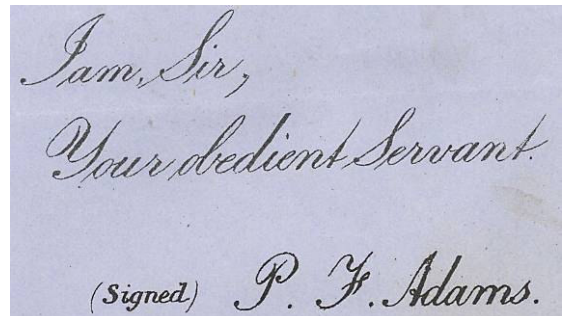 I am, Sir,
Your obedient Servant.
(Signed) P. F. Adams.